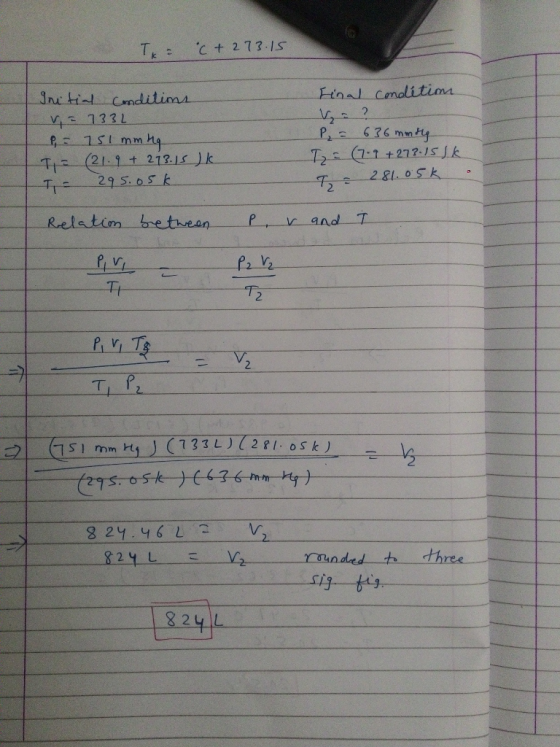 Tk = °C + 273.15
Initial conditions
V1 = 733L
P1 = 751 mmHg
T1 = (21.9 + 273.15)k
T1 = 295.05k
Final conditions
V2 = ?
P2 = 636 mmHg
T2 = (7.9 + 273.15)k
T2 = 281.05k
Relation between P, V and T
P1 V1 / T1 = P2 V2 / T2
⇒ P1 V1 T2 / T1 P2 = V2
⇒ (751 mm Hg) (733L) (281.05k) / (295.05k) (636 mm Hg) = V2
⇒ 824.46 L = V2
824 L = V2 rounded to three
sig fig.
824 L